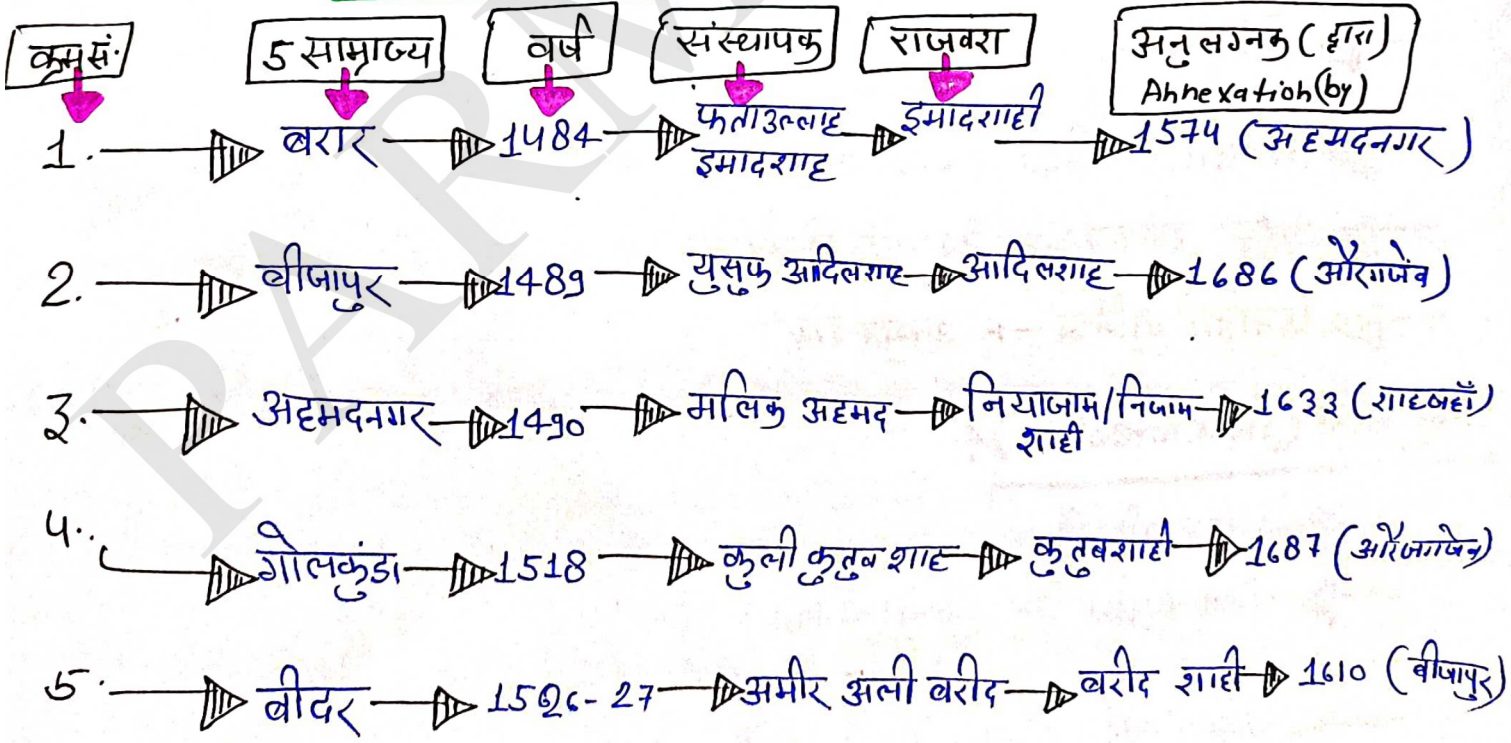 क्रम सं. 5 साम्राज्य वर्ष संस्थापक राजवंश अनुलग्नक (द्वारा)
Annexation (by)
1. बरार 1484 फतउल्लाह इमादशाह इमादशाही 1574 (अहमदनगर)
2. बीजापुर 1489 युसुफ आदिलशाह आदिलशाह 1686 (औरंगजेब)
3. अहमदनगर 1490 मलिक अहमद नियाजाम/निजाम शाही 1633 (शाहजहाँ)
4. गोलकुंडा 1518 कुली कुतुब शाह कुतुबशाही 1687 (औरंजगजेब)
5. बीदर 1526-27 अमीर अली बरीद बरीद शाही 1610 (बीजापुर)
PARM